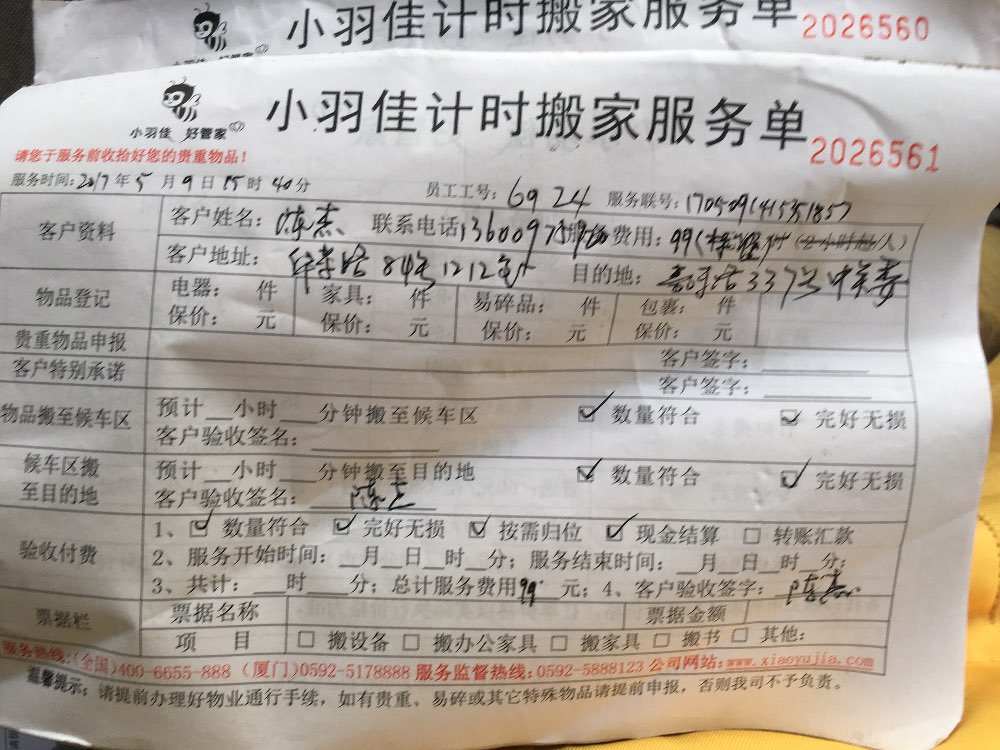 小羽佳计时搬家服务单 2026560
小羽佳 好管家
小羽佳计时搬家服务单 2026561
请您于服务前收拾好您的贵重物品！
服务时间：2017年5月9日15时40分 员工工号：6924 服务联号：
客户资料 客户姓名：陈杰 联系电话 费用：99
客户地址： 84号1212室 目的地： 337号
物品登记 电器： 件 家具： 件 易碎品： 件 包裹： 件
保价： 元 保价： 元 保价： 元 保价： 元
贵重物品申报 客户签字：
客户特别承诺 客户签字：
物品搬至候车区 预计__小时__分钟搬至候车区 ☑ 数量符合 ☑ 完好无损
客户验收签名：
候车区搬至目的地 预计__小时__分钟搬至目的地 ☑ 数量符合 ☑ 完好无损
客户验收签名：陈杰
验收付费 1、☑ 数量符合 ☑ 完好无损 ☑ 按需归位 ☑ 现金结算 □ 转账汇款
2、服务开始时间：__月__日__时__分；服务结束时间：__月__日__时__分；
3、共计：__时__分；总计服务费用99元；4、客户验收签字：陈杰
票据栏 票据名称 票据金额
项 目 □ 搬设备 □ 搬办公家具 □ 搬家具 □ 搬书 □ 其他：
服务热线：(全国)400-6655-888 (厦门)0592-5178888 服务监督热线：0592-5888123 公司网站：www.xiaoyujia.com
温馨提示：请提前办理好物业通行手续，如有贵重、易碎或其它特殊物品请提前申报，否则我司不予负责。